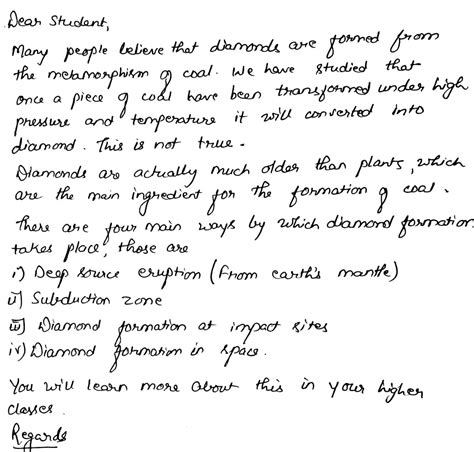 Dear Student,
Many people believe that diamonds are formed from
the metamorphism of coal. We have studied that
once a piece of coal have been transformed under high
pressure and temperature it will converted into
diamond. This is not true.
Diamonds are actually much older than plants, which
are the main ingredient for the formation of coal.
There are four main ways by which diamond formation
takes place, those are
i) Deep source eruption (From earth's mantle)
ii) Subduction zone
iii) Diamond formation at impact sites
iv) Diamond formation in space.
You will learn more about this in your higher
classes.
Regards